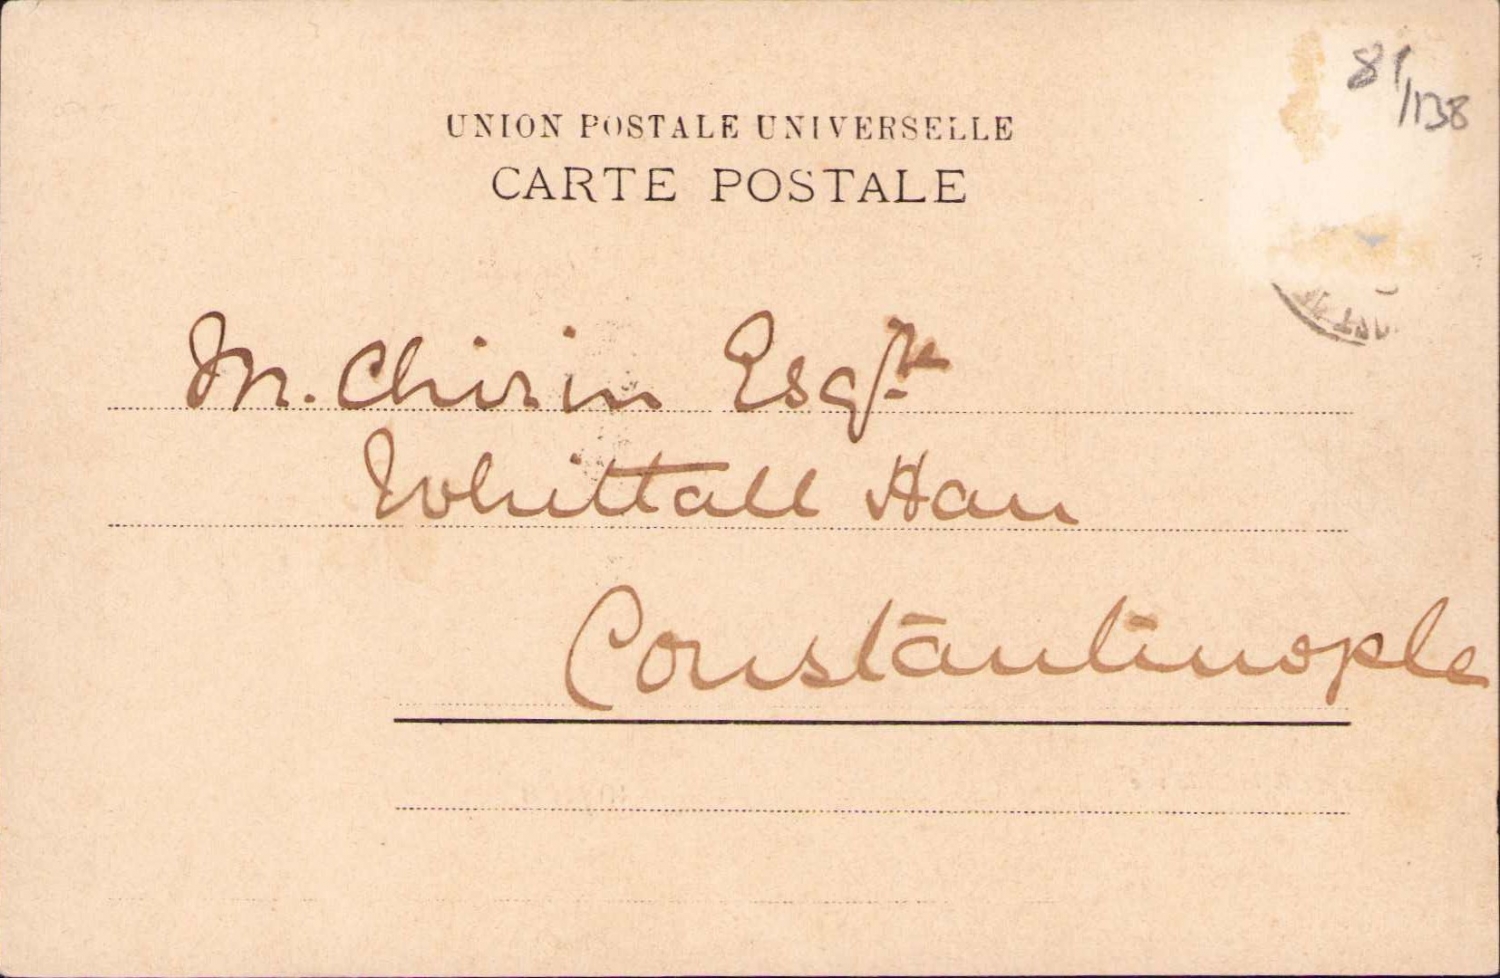 81/1138
UNION POSTALE UNIVERSELLE
CARTE POSTALE
M. Chirin Esqre
Whittall Han
Constantinople